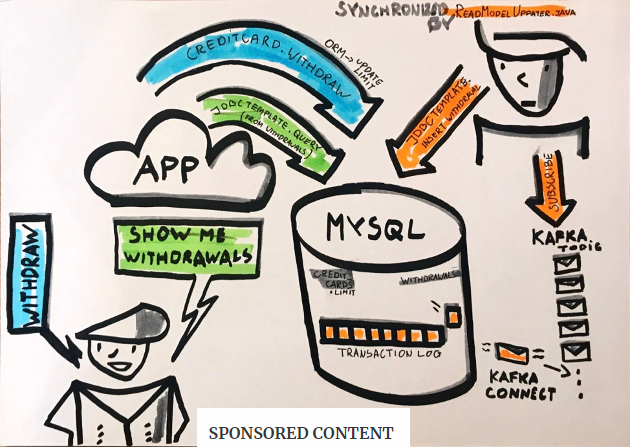 SYNCHRONIZED
BY READMODELUPPATER.JAVA
CREDITCARD.WITHDRAW
ORM → UPDATE
LIMIT
JDBCTEMPLATE.QUERY
(FROM WITHDRAWALS)
JDBCTEMPLATE.
INSERT WITHDRAWAL
APP
SUBSCRIBE
WITHDRAW
SHOW ME
WITHDRAWALS
MYSQL
KAFKA
TOPIC
CREDIT
CARDS
• LIMIT
WITHDRAWALS
TRANSACTION LOG
KAFKA
CONNECT
SPONSORED CONTENT